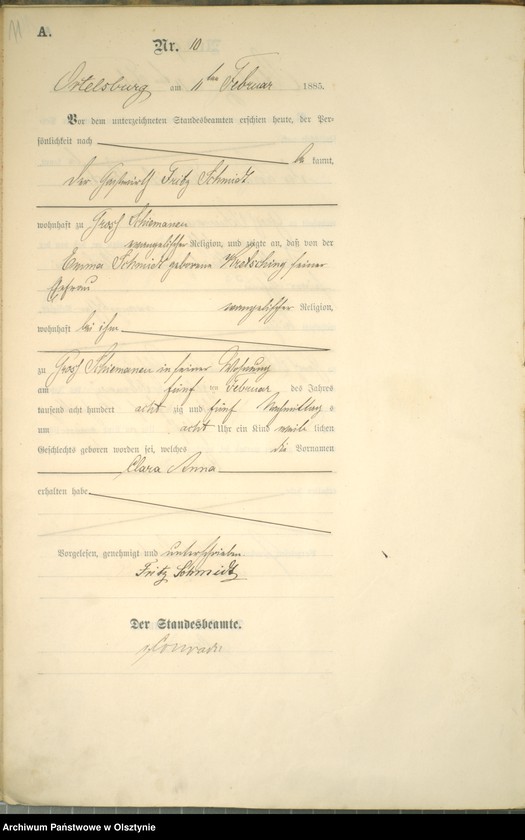 11
A.
Nr. 10
Ortelsburg am 11 ten Februar 1885.
Vor dem unterzeichneten Standesbeamten erschien heute, der Per-
sönlichkeit nach
be kannt,
der Gastwirth Fritz Schmidt
wohnhaft zu Groß Schiemanen
evangelischer Religion, und zeigte an, daß von der
Emma Schmidt geborene seiner
Ehefrau
evangelischer Religion,
wohnhaft bei ihm
zu Groß Schiemanen in seiner Wohnung
am fünf ten Februar des Jahres
tausend acht hundert acht zig und fünf Nachmittag s
um acht Uhr ein Kind weib lichen
Geschlechts geboren worden sei, welches die Vornamen
Clara Anna
erhalten habe
Vorgelesen, genehmigt und unterschrieben
Fritz Schmidt
Der Standesbeamte.
Archiwum Państwowe w Olsztynie